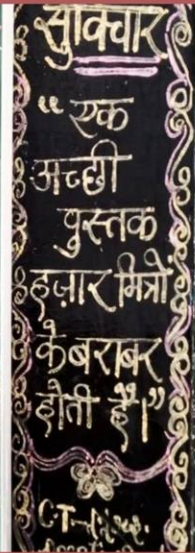 सुविचार
“एक
अच्छी
पुस्तक
हज़ार मित्रों
के बराबर
होती है।”
CT-